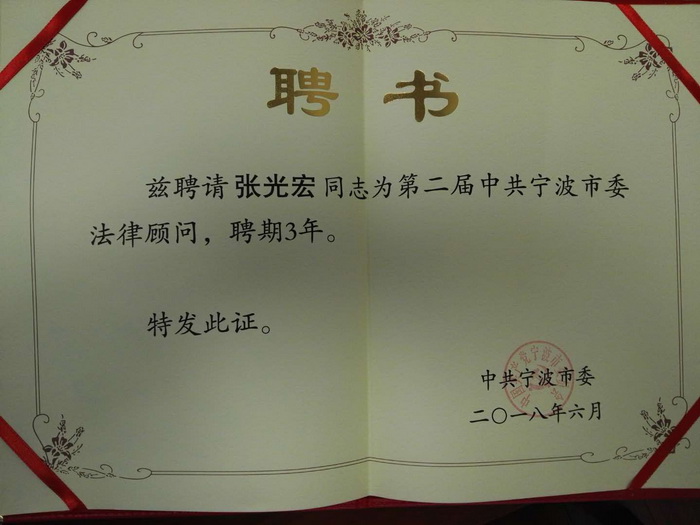 聘书
兹聘请张光宏同志为第二届中共宁波市委
法律顾问，聘期3年。
特发此证。
中共宁波市委
二〇一八年六月